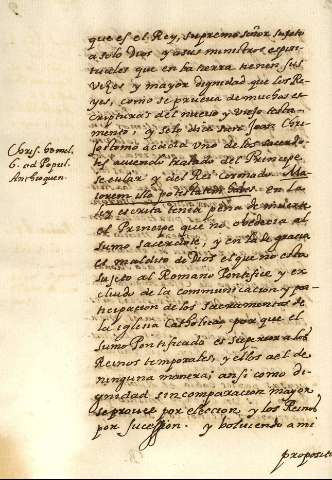 que es el Rey, supremo señor sujeto
a solo Dios y a sus ministros espiri-
tuales que en la tierra tienen sus
vezes y mayor dignidad que los Re-
yes, como se prueva de muchas es-
cripturas del nuevo y viejo testa-
mento, y solo dice san Joan Chri-
sostomo acada uno de los sacerdo-
tes aviendo tratado del Principe
secular y del Rei coronado. Ma-
iorem illo potestatem habes. en la
ley escrita tenia pena de muerte
el Principe que no obedecia al
sumo sacerdote, y en la de gracia
es maldito de Dios el que no esta
sujeto al Romano Pontifice y ex-
cluido de la communicacion y par-
ticipacion de los sacramentos de
la iglesia Catholica, por que el
sumo Pontificado es superior a los
Reinos temporales, y ellos a el de
ninguna manera; ansi como di-
gnidad sin comparacion mayor
se provee por eleccion, y los Reinos
por sucession. y bolviendo a mi
proposito
Chris. homil.
6. ad Popul.
Antioquen.